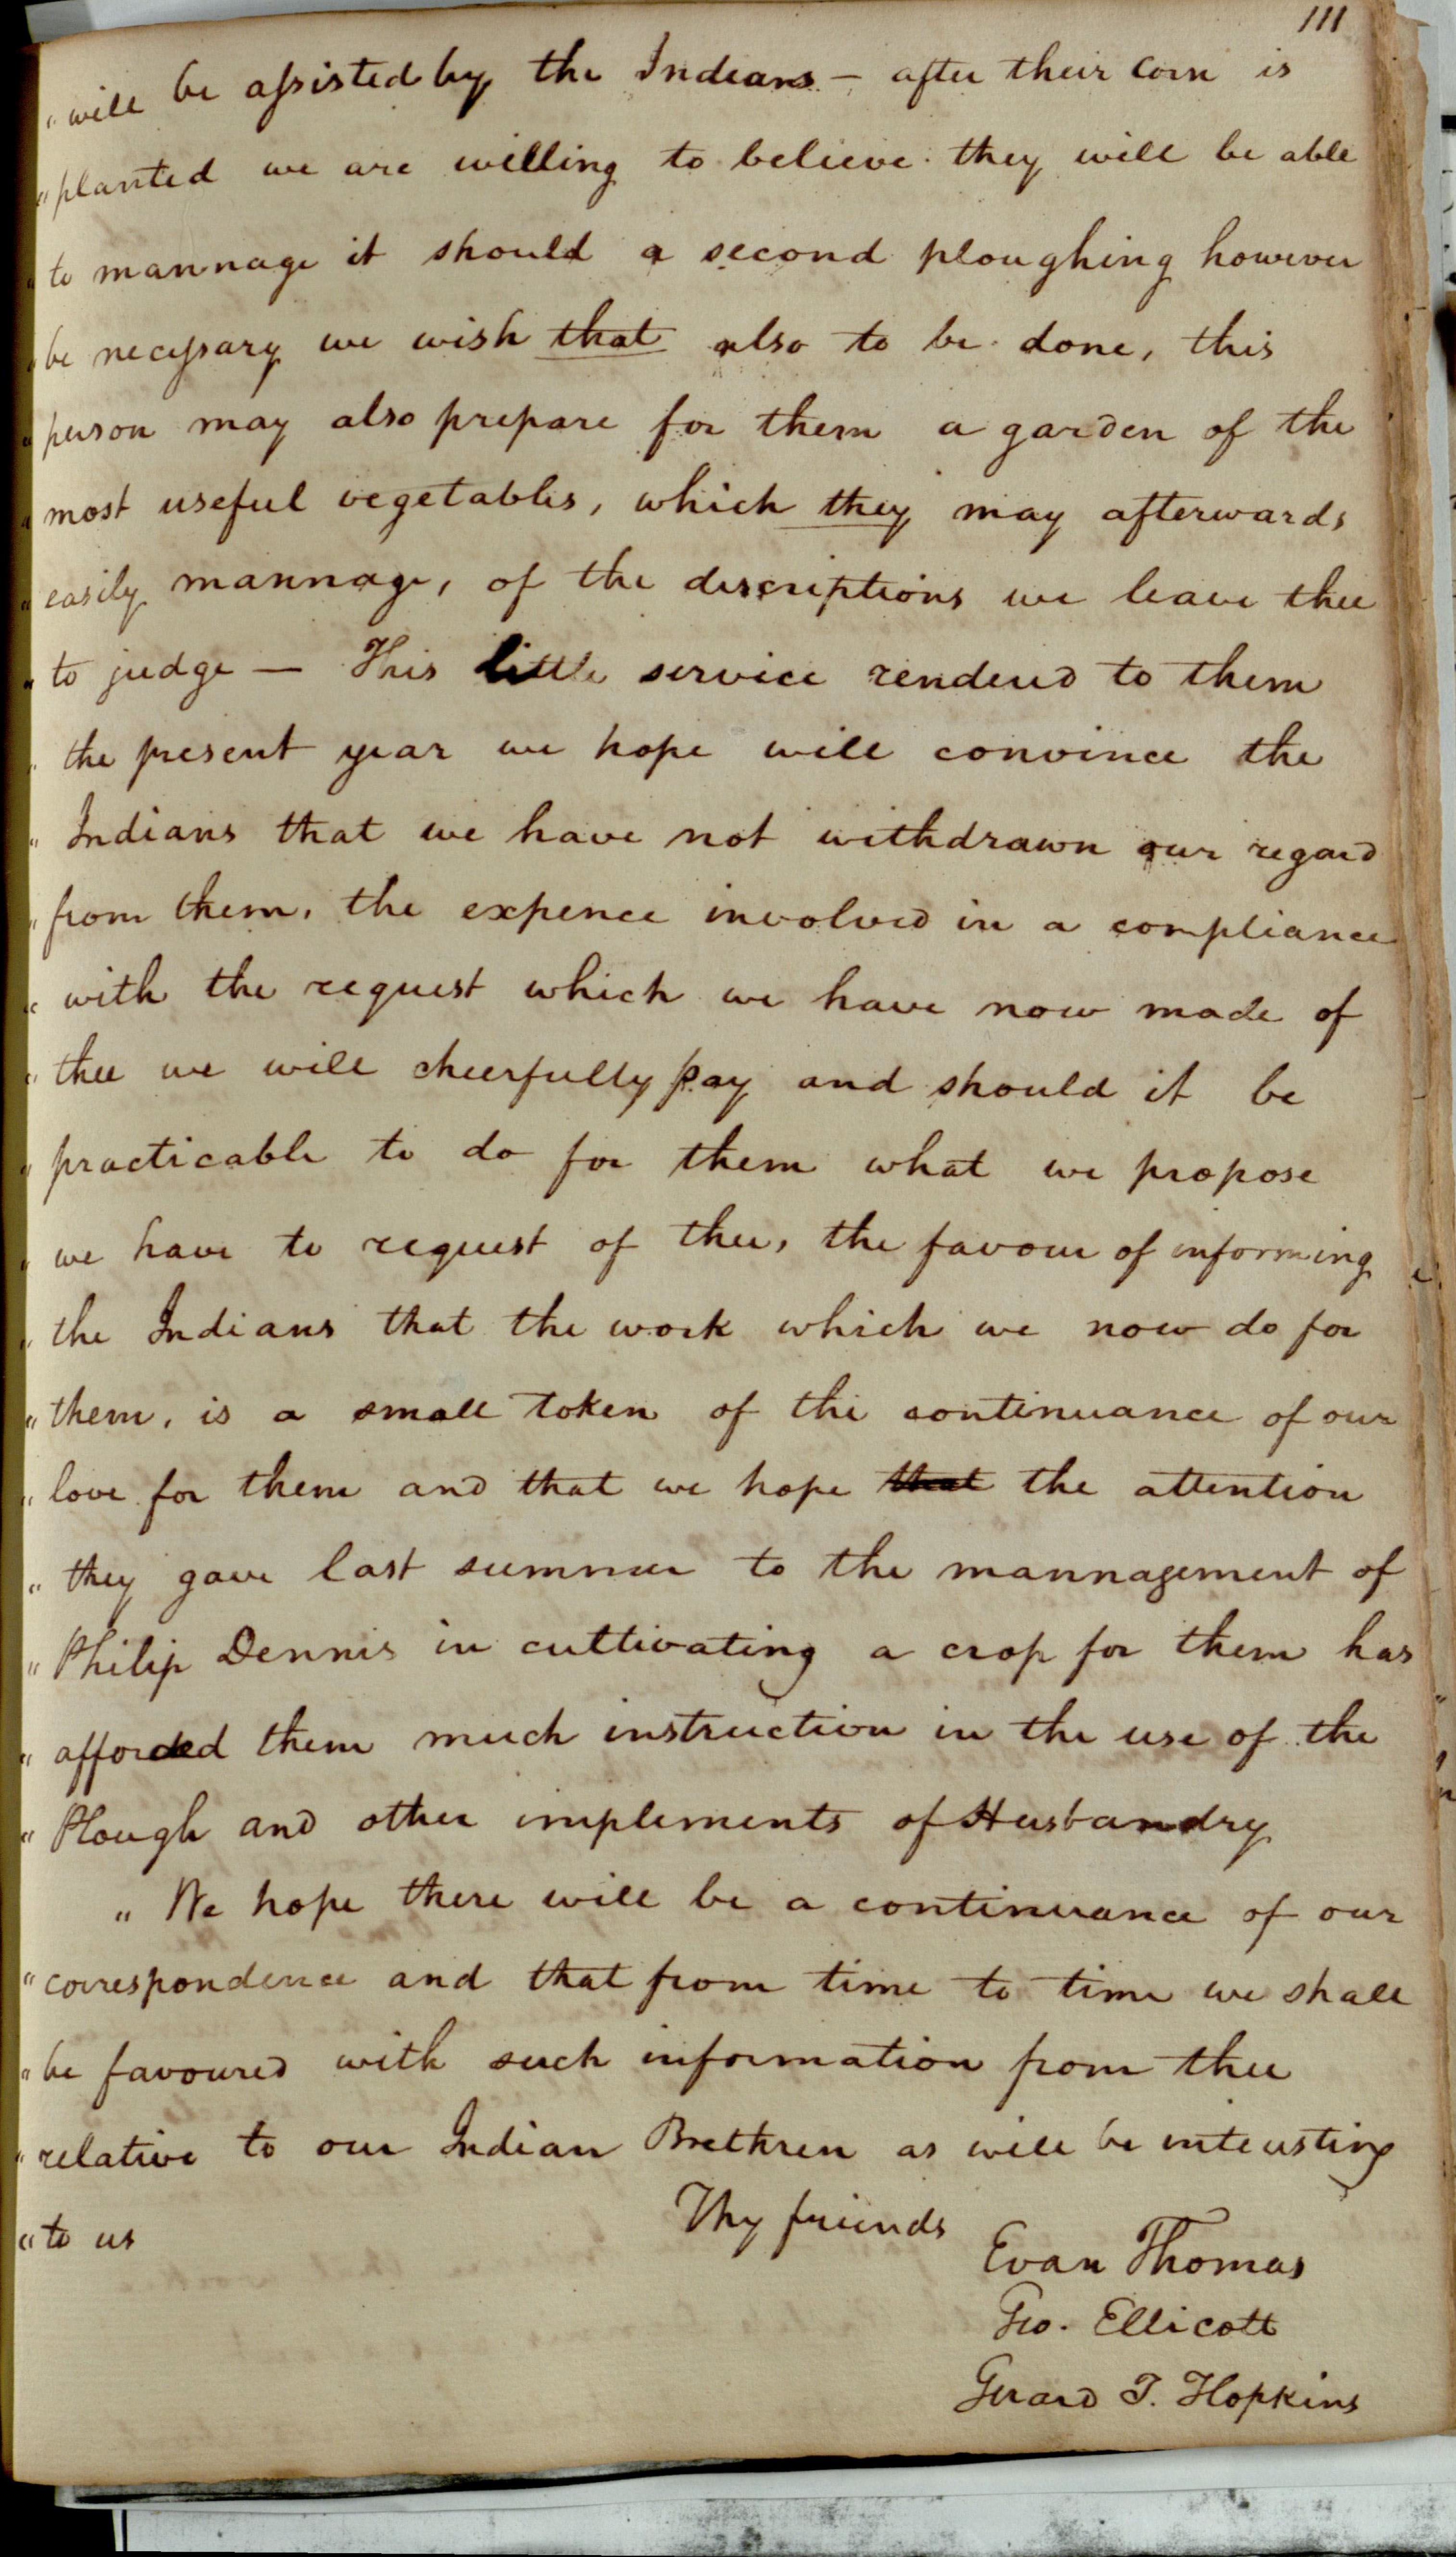 111
" will be assisted by the Indians – after their Corn is
" planted we are willing to believe they will be able
" to mannage it should a second ploughing however
" be necessary we wish that also to be done, this
" person may also prepare for them a garden of the
" most useful vegetables, which they may afterwards
" easily mannage, of the descriptions we leave thee
" to judge — This little service renderd to them
" the present year we hope will convince the
" Indians that we have not withdrawn our regard
" from them, the expence involved in a compliance
" with the request which we have now made of
" thee we will cheerfully pay and should it be
" practicable to do for them what we propose
" we have to request of thee, the favour of informing
" the Indians that the work which we now do for
" them, is a small token of the continuance of our
" love for them and that we hope that the attention
" they gave last summer to the mannagement of
" Philip Dennis in cultivating a crop for them has
" afforded them much instruction in the use of the
" Plough and other implements of Husbandry
" We hope there will be a continuance of our
" correspondence and that from time to time we shall
" be favoured with such information from thee
" relative to our Indian Brethren as will be interesting
" to us
Thy friends
Evan Thomas
Geo. Ellicott
Gerard T. Hopkins